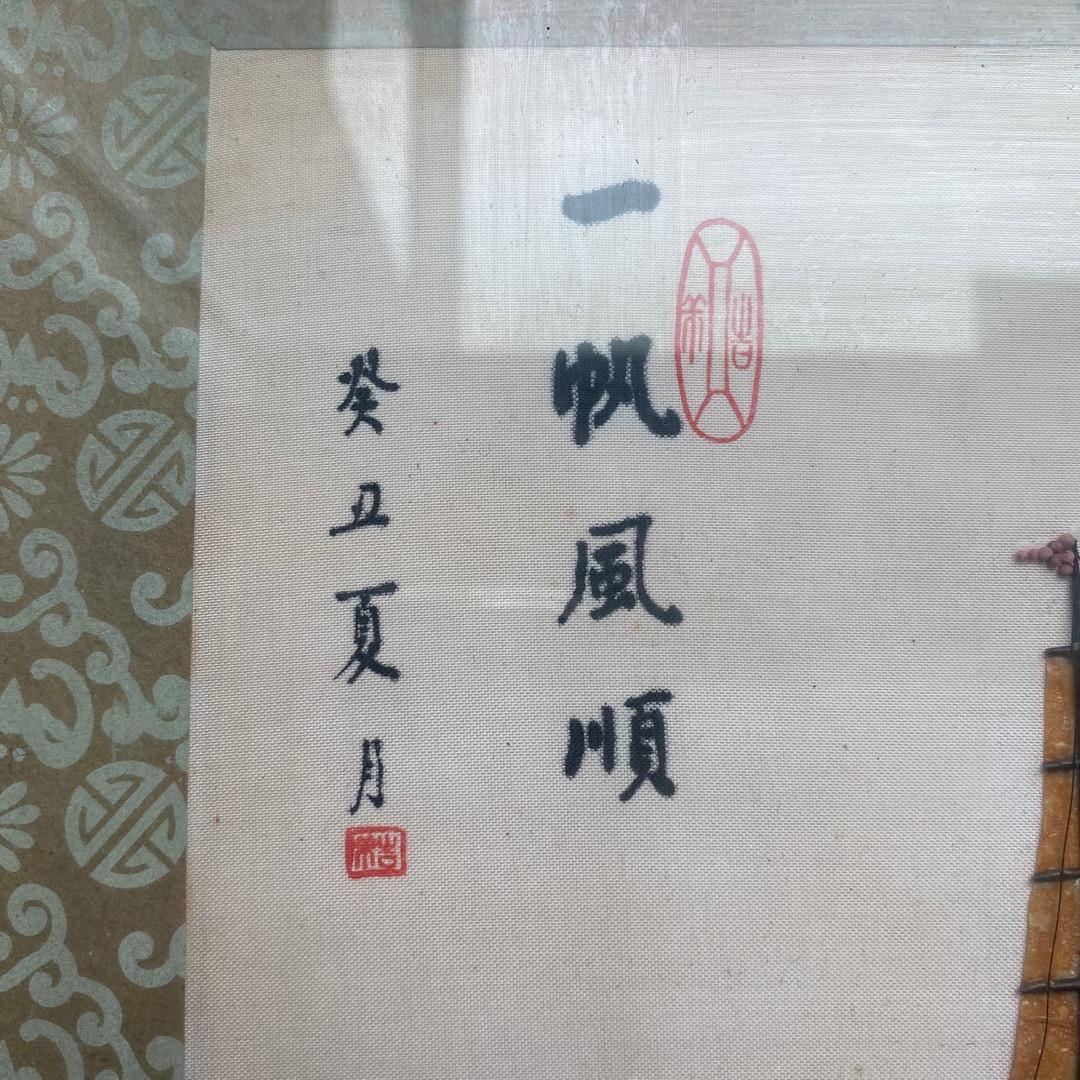 一帆風順
癸丑夏月